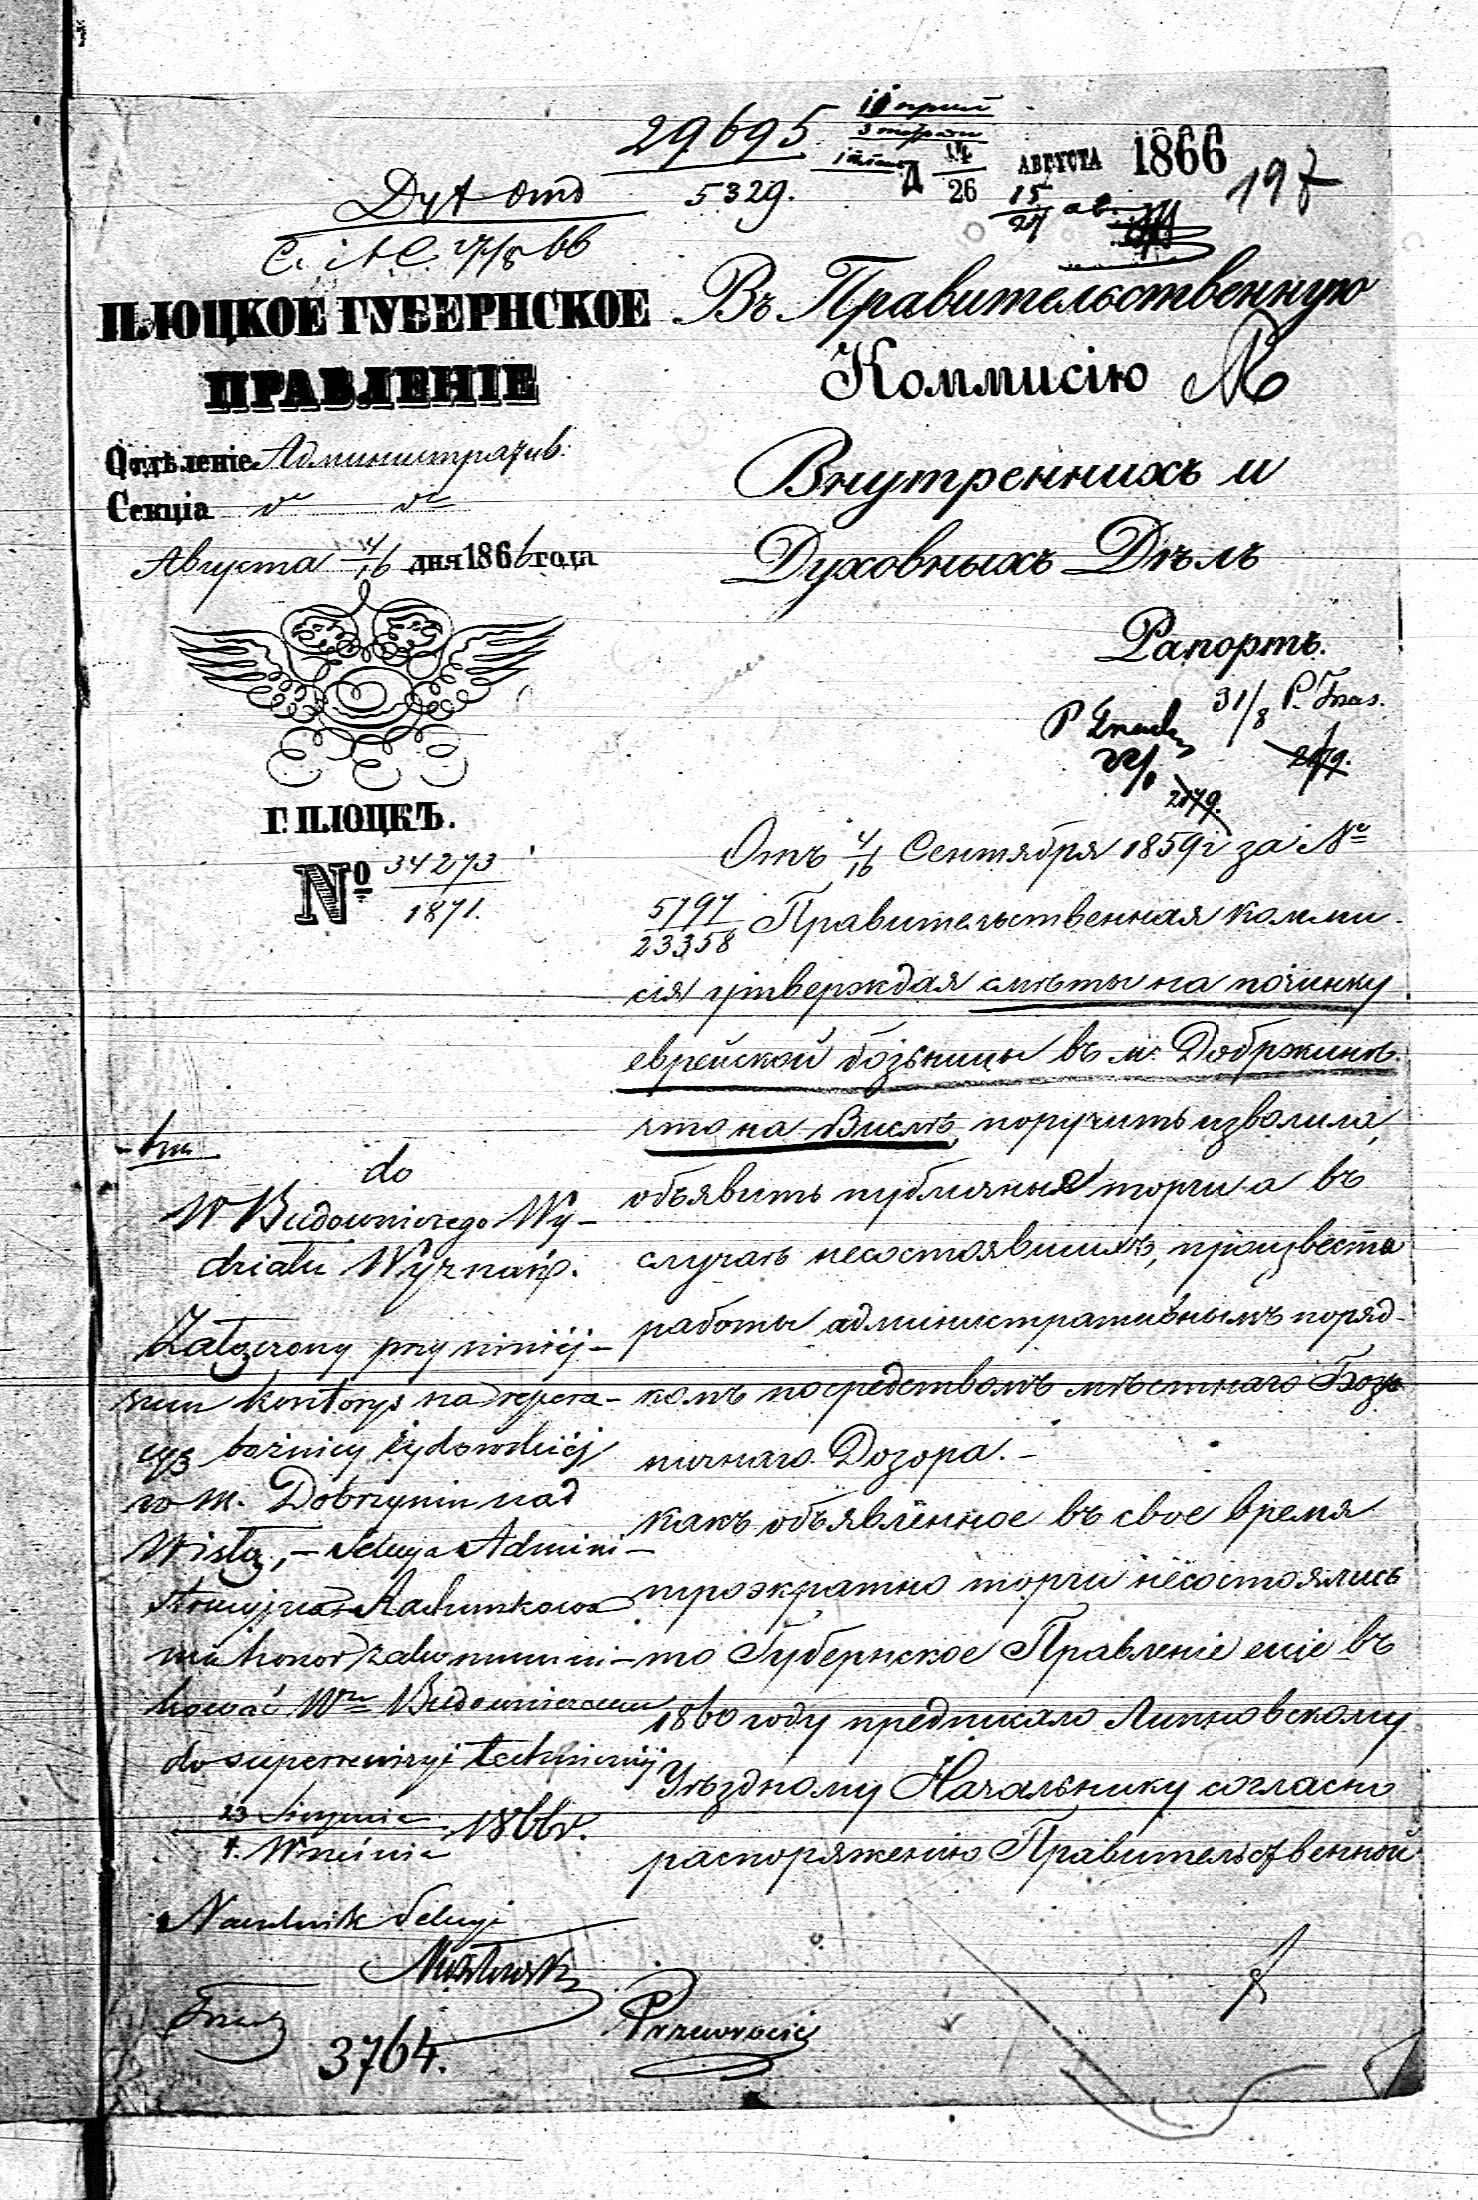 29695
5329.
14
26
АВГУСТА
1866
197
15
27
ав.
ПЛОЦКОЕ ГУБЕРНСКОЕ
ПРАВЛЕНІЕ
Отдѣленіе Административ.
Секція
Августа 4/16 дня 1866 года
Г. ПЛОЦКЪ.
№ 34273
1871.
Въ Правительственную
Коммисію
Внутреннихъ и
Духовныхъ Дѣлъ
Рапортъ.
31/8
2179.
2179.
Отъ 4/16 Сентября 1859 г за №
5797
23358 Правительственная Комми-
сія утверждая смѣты на починку
еврейской божницы въ м. Добржинѣ
что на Вислѣ, поручить изволила,
объявить публичные торги а въ
случаѣ несостоявшихъ, произвести
работы административнымъ поряд-
комъ посредствомъ мѣстнаго Божн
ничнаго Дозора.-
Какъ объявленное въ свое время
троэкратно торги несостоялись
то Губернское Правленіе еще въ
1860 году предписало Липновскому
Уѣздному Начальнику согласно
распоряженію Правительственной
do
W Budowniczego Wy-
działu Wyznań.
Załączony przy niniéj-
szem kosztorys na repera-
cyą bożnicy żydowskiéj
w m. Dobrzyniu nad
Wisłą, - Sekcya Admini-
stracyjno Rachunkowa
ma honor zakommuni-
kować Wmu Budowniczemu
do superrewizyi technicznéj
23 Sierpnia
4. Września 1866 r.
Naczelnik Sekcyi
3764.